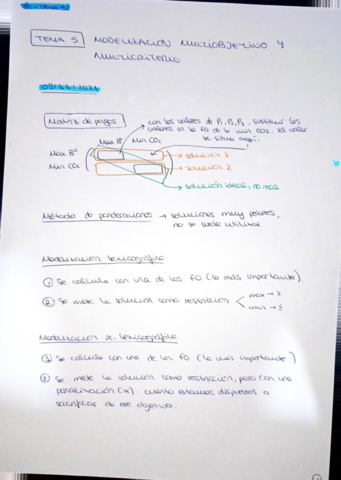 TEMA 5
TEMA 5 MODELIZACIÓN MULTIOBJETIVO Y
MULTICRITERIO
Matriz de pagos
con los valores de P1, P2, P3, sustituir los
valores en la FO de la min CO2. El valor
se sitúa aquí.
Max Bº Min CO2
Max Bº → solución 1
Min CO2 → solución 2
→ solución ideal, no real
Método de ponderaciones → soluciones muy pobres,
no se suele utilizar
Modelización lexicográfica
① Se calcula con una de las FO (la más importante)
② Se mete la solución como restricción
max → ≥
min → ≤
Modelización α-lexicográfica
① Se calcula con una de las FO (la más importante)
② Se mete la solución como restricción, pero con una
penalización (α) cuanto estamos dispuestos a
sacrificar de ese objetivo.